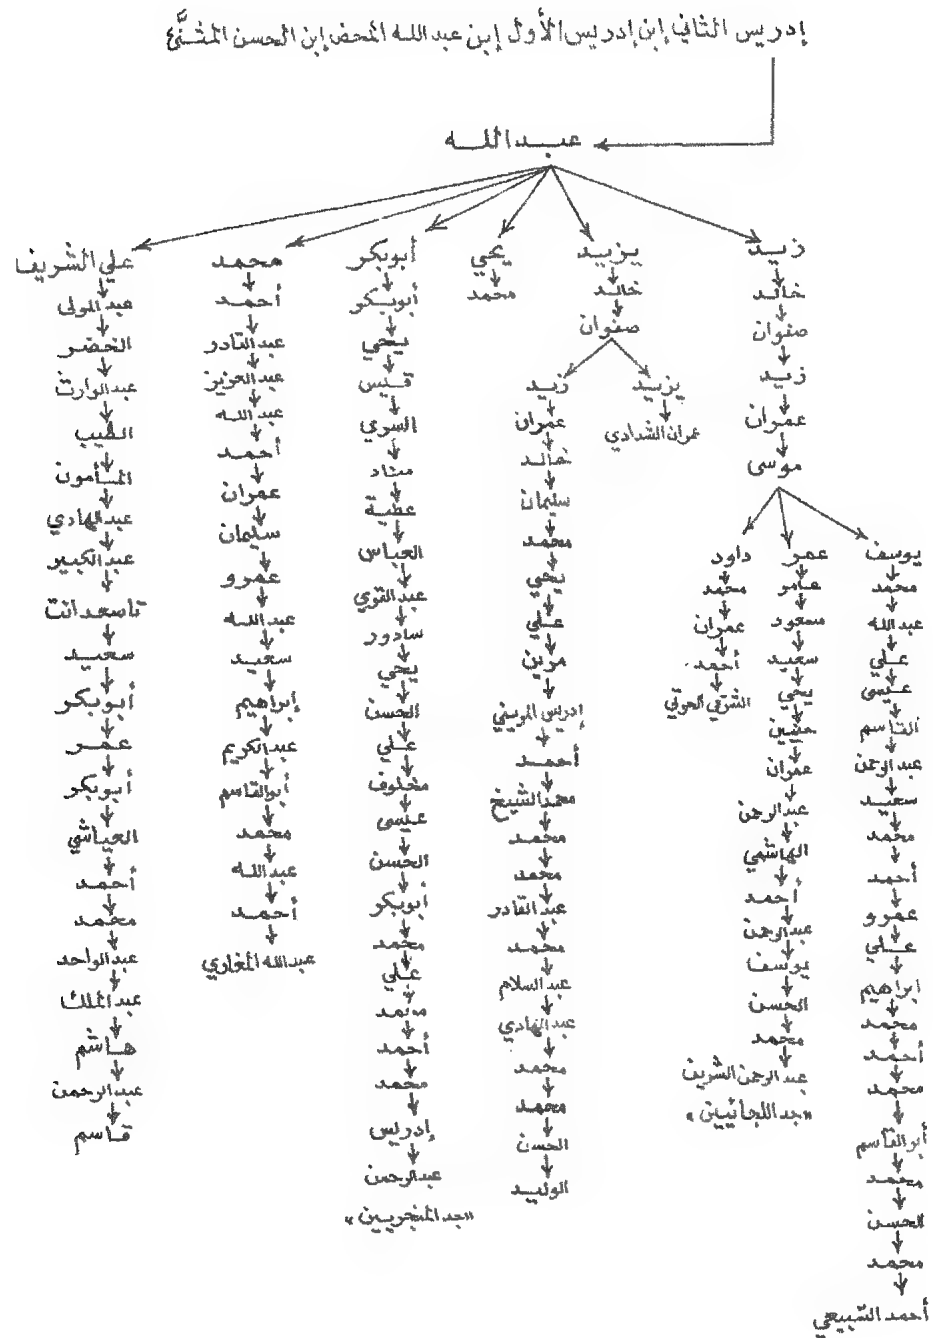 إدريس الثاني إبن إدريس الأول إبن عبد الله المحض إبن الحسن المثنّى
عبد الله
زيد
خالد
صفوان
زيد
عمران
موسى
يوسف
محمد
عبد الله
علي
عيسى
القاسم
عبد الرحمن
سعيد
محمد
أحمد
عمرو
علي
ابراهيم
محمد
أحمد
محمد
أبو القاسم
محمد
الحسن
محمد
أحمد الشبيعي
عمر
عامر
مسعود
سعيد
يحي
حنين
عمران
عبد الرحمن
الهاشمي
أحمد
عبد الرحمن
يوسف
الحسن
محمد
عبد الرحمن الشريف
«جد اللجائيين»
داود
محمد
عمران
أحمد
الشرقي الحوتي
يزيد
خالد
صفوان
يزيد
عمران الشدادي
زيد
عمران
خالد
سليمان
محمد
يحي
علي
مرين
إدريس المريني
أحمد
محمد الشيخ
محمد
محمد
عبد القادر
محمد
عبد السلام
عبد الهادي
محمد
محمد
الحسن
الوليد
يحي
محمد
أبوبكر
أبوبكر
يحي
قيس
السري
مناد
عطية
العباس
عبد القوي
سادور
يحي
الحسن
علي
مخلوف
عيسى
الحسن
أبوبكر
محمد
علي
محمد
أحمد
محمد
إدريس
عبد الرحمن
«جد المنجريين»
محمد
أحمد
عبد القادر
عبد العزيز
عبد الله
أحمد
عمران
سليمان
عمرو
عبد الله
سعيد
إبراهيم
عبد الكريم
أبو القاسم
محمد
عبد الله
أحمد
عبد الله المغاري
علي الشريف
عبد المولى
الخضر
عبد الوارث
الطيب
المأمون
عبد الهادي
عبد الكبير
تاسعدانت
سعيد
أبوبكر
عمر
أبوبكر
العياشي
أحمد
محمد
عبد الواحد
عبد الملك
هاشم
عبد الرحمن
قاسم